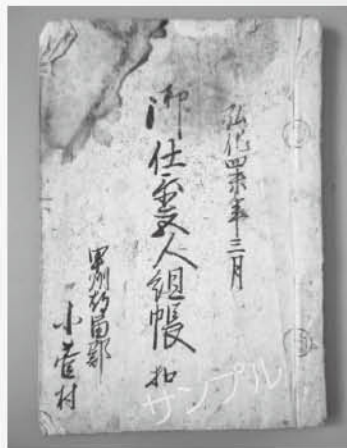 弘化四未年三月
御仕置五人組帳 扣
甲州都留郡
小菅村
サンプル